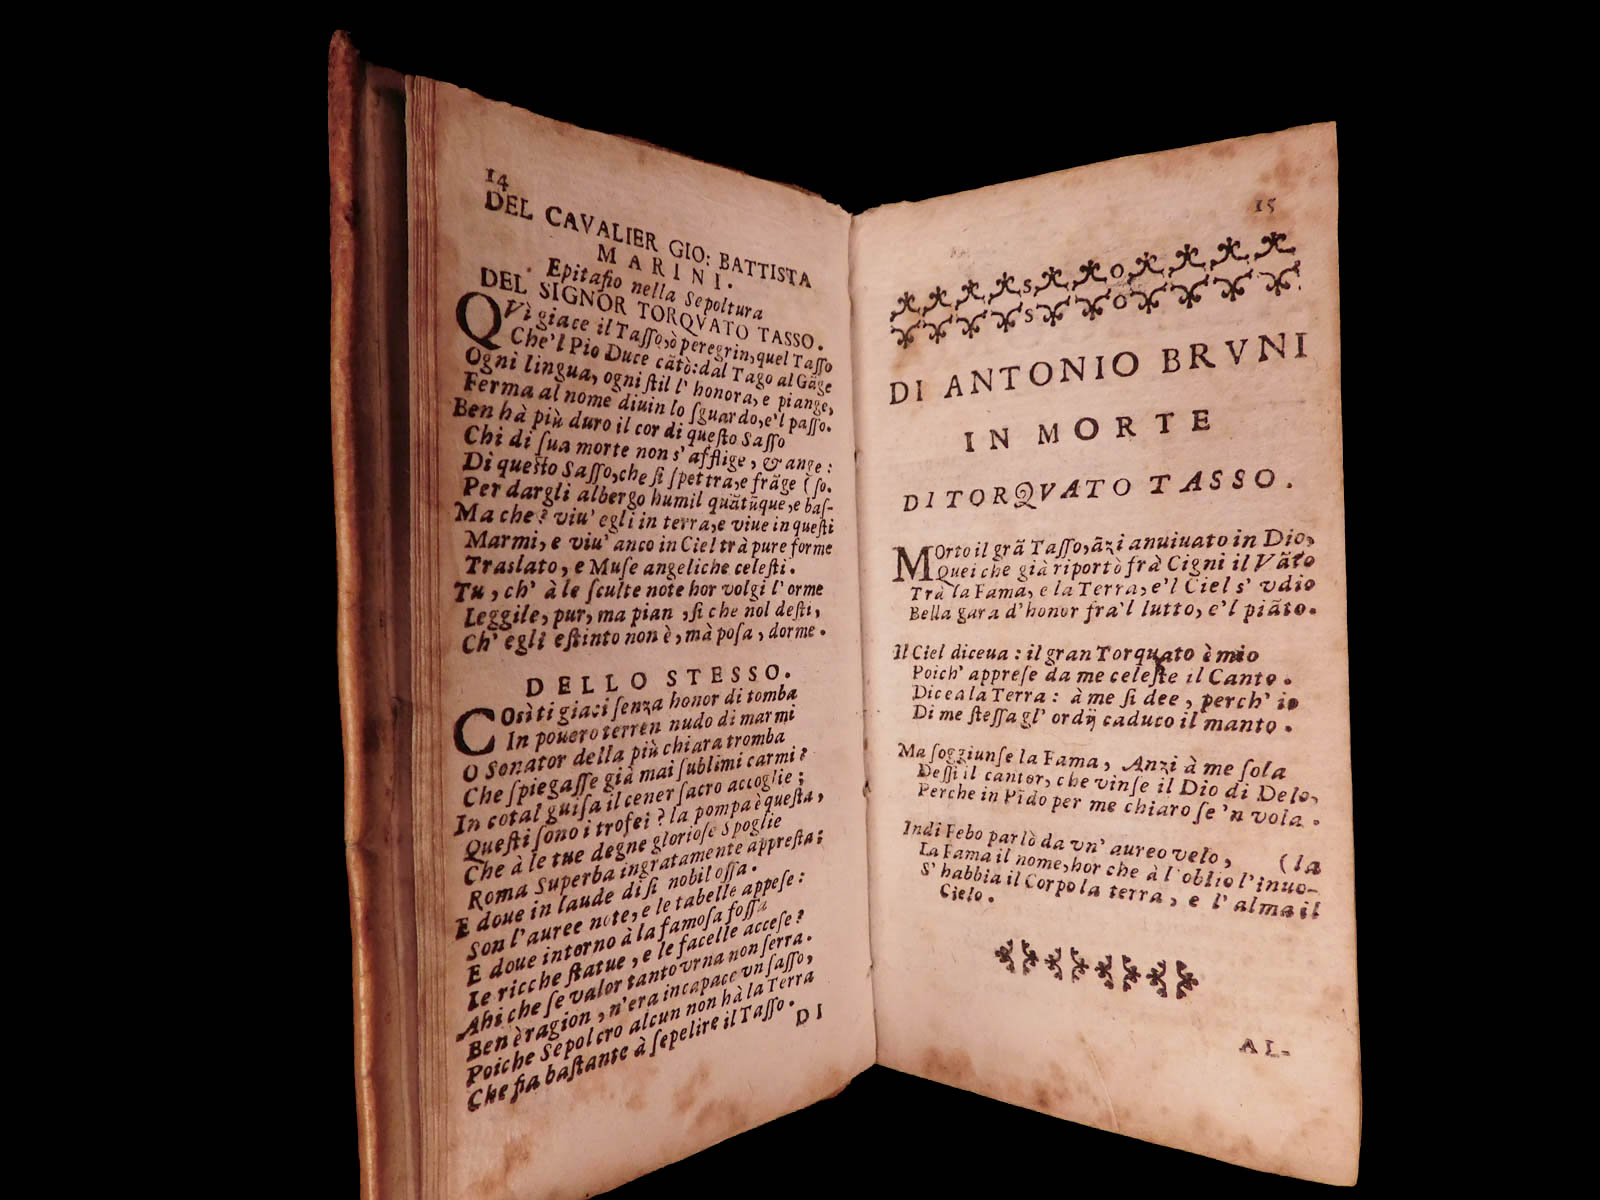 14
DEL CAVALIER GIO: BATTISTA
MARINI.
Epitafio nella Sepoltura
DEL SIGNOR TORQVATO TASSO.
QVì giace il Taſſo, ò peregrin, quel Taſſo
Che'l Pio Duce cãtò: dal Tago al Gãge
Ogni lingua, ogni ſtil l' honora, e piange,
Ferma al nome diuin lo ſguardo, e'l paſſo.
Ben hà più duro il cor di queſto Saſſo
Chi di ſua morte non s' afflige, & ange:
Di queſto Saſſo, che ſi ſpetra, e frãge (ſo.
Per dargli albergo humil quãtũque, e baſ-
Ma che? viu' egli in terra, e viue in queſti
Marmi, e viu' anco in Ciel trà pure forme
Traslato, e Muſe angeliche celeſti.
Tu, ch' à le ſculte note hor volgi l' orme
Leggile, pur, ma pian, ſi che nol deſti,
Ch' egli eſtinto non è, mà poſa, dorme.
DELLO STESSO.
COsì ti giaci ſenza honor di tomba
In pouero terren nudo di marmi
O Sonator della più chiara tromba
Che ſpiegaſſe già mai ſublimi carmi?
In cotal guiſa il cener ſacro accoglie;
Queſti ſono i trofei? la pompa è queſta,
Che à le tue degne glorioſe Spoglie
Roma Superba ingratamente appreſta;
E doue in laude di ſi nobil oſſa.
Son l'auree note, e le tabelle appeſe:
E doue intorno à la famoſa foſſa
Le ricche ſtatue, e le facelle acceſe?
Ahi che ſe valor tanto vrna non ſerra.
Ben è ragion, n'era incapace vn ſaſſo,
Poiche Sepolcro alcun non hà la Terra
Che ſia baſtante à ſepelire il Taſſo.
DI
15
DI ANTONIO BRVNI
IN MORTE
DI TORQVATO TASSO.
MOrto il grã Taſſo, ãzi anuiuato in Dio,
Quei che già riportò frà Cigni il Vãto
Trà la Fama, e la Terra, e'l Ciel s' vdio
Bella gara d'honor fra'l lutto, e'l piãto.
Il Ciel diceua: il gran Torquato è mio
Poich' appreſe da me celeſte il Canto.
Dicea la Terra: à me ſi dee, perch' io
Di me ſteſſa gl' ordij caduco il manto.
Ma ſoggiunſe la Fama, Anzi à me ſola
Deſſi il cantor, che vinſe il Dio di Delo,
Perche in Pido per me chiaro ſe 'n vola.
Indi Febo parlò da vn' aureo velo, (la
La Fama il nome, hor che à l' oblio l'inuo-
S' habbia il Corpo la terra, e l' alma il
Cielo.
AL-